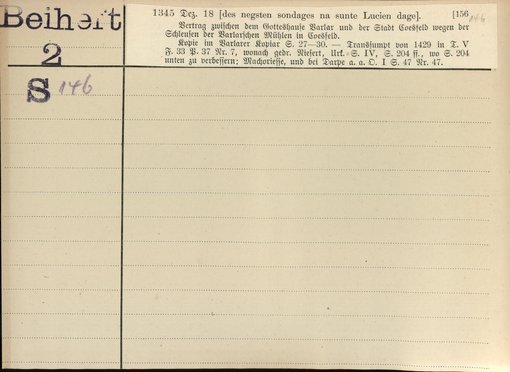 Beiheft
2
S 146
1345 Dez. 18 [des negsten sondages na sunte Lucien dage]. [156 146
Vertrag zwischen dem Gotteshause Varlar und der Stadt Coesfeld wegen der
Schleusen der Varlarschen Mühlen in Coesfeld.
Kopie im Varlarer Kopiar S. 27—30. — Transsumpt von 1429 in T. V
F. 33 P. 37 Nr. 7, wonach gedr. Niesert, Urk.-S. IV, S. 204 ff., wo S. 204
unten zu verbessern; Machoriesse, und bei Darpe a. a. O. I S. 47 Nr. 47.